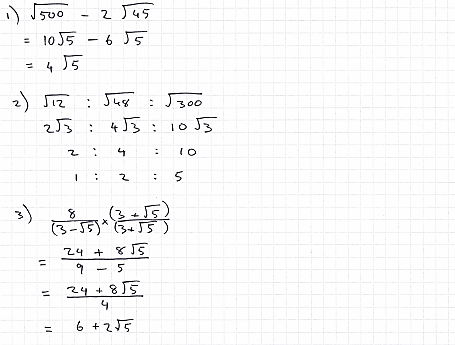 1) √500 - 2 √45
= 10√5 - 6 √5
= 4 √5
2) √12 : √48 : √300
2√3 : 4√3 : 10 √3
2 : 4 : 10
1 : 2 : 5
3) 8/(3-√5) × (3+√5)/(3+√5)
= (24 + 8√5)/(9 - 5)
= (24 + 8√5)/4
= 6 + 2√5